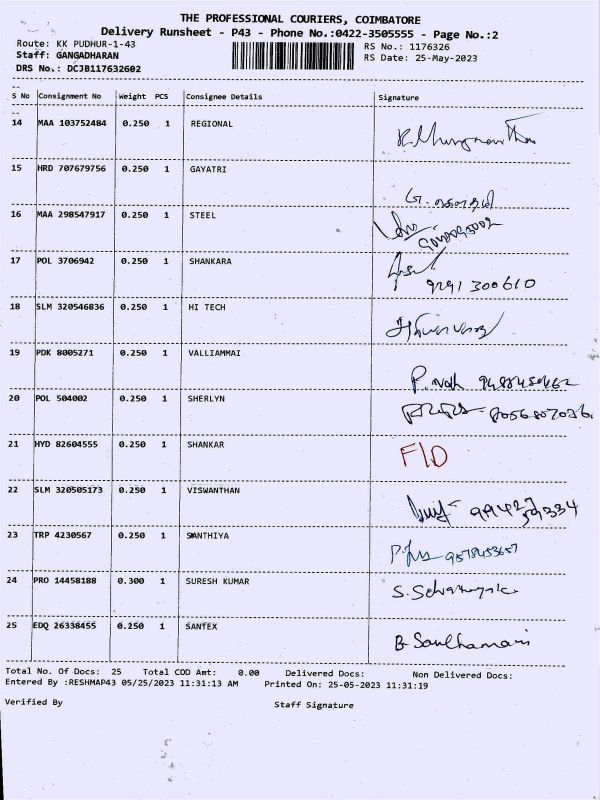 THE PROFESSIONAL COURIERS, COIMBATORE
Delivery Runsheet - P43 - Phone No.:0422-3505555 - Page No.:2
Route: KK PUDHUR-1-43 RS No.: 1176326
Staff: GANGADHARAN RS Date: 25-May-2023
DRS No.: DCJB117632602
S No Consignment No Weight PCS Consignee Details Signature
14 MAA 103752484 0.250 1 REGIONAL
15 HRD 707679756 0.250 1 GAYATRI
16 MAA 298547917 0.250 1 STEEL
17 POL 3706942 0.250 1 SHANKARA
9291300610
18 SLM 320546836 0.250 1 HI TECH
19 PDK 8005271 0.250 1 VALLIAMMAI
20 POL 504002 0.250 1 SHERLYN
21 HYD 82604555 0.250 1 SHANKAR F/D
22 SLM 320505173 0.250 1 VISWANTHAN
23 TRP 4230567 0.250 1 SANTHIYA
24 PRO 14458188 0.300 1 SURESH KUMAR
25 EDQ 26338455 0.250 1 SANTEX
Total No. Of Docs: 25 Total COD Amt: 0.00 Delivered Docs: Non Delivered Docs:
Entered By :RESHMAP43 05/25/2023 11:31:13 AM Printed On: 25-05-2023 11:31:19
Verified By Staff Signature